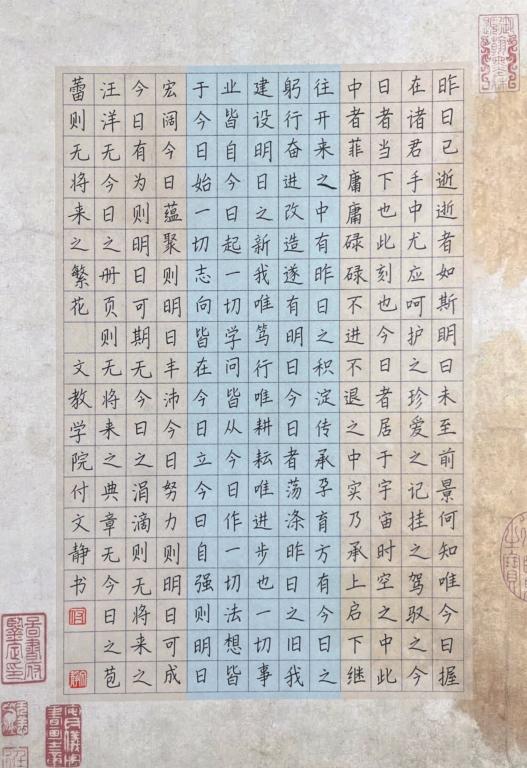 昨日已逝逝者如斯明日未至前景何知唯今日握
在诸君手中尤应呵护之珍爱之记挂之驾驭之今
日者当下也此刻也今日者居于宇宙时空之中此
中者菲庸庸碌碌不进不退之中实乃承上启下继
往开来之中有昨日之积淀传承孕育方有今日之
躬行奋进改造遂有明日今日者荡涤昨日之旧我
建设明日之新我唯笃行唯耕耘唯进步也一切事
业皆自今日起一切学问皆从今日作一切法想皆
于今日始一切志向皆在今日立今日自强则明日
宏阔今日蕴聚则明日丰沛今日努力则明日可成
今日有为则明日可期无今日之涓滴则无将来之
汪洋无今日之册页则无将来之典章无今日之苞
蕾则无将来之繁花 文教学院付文静书